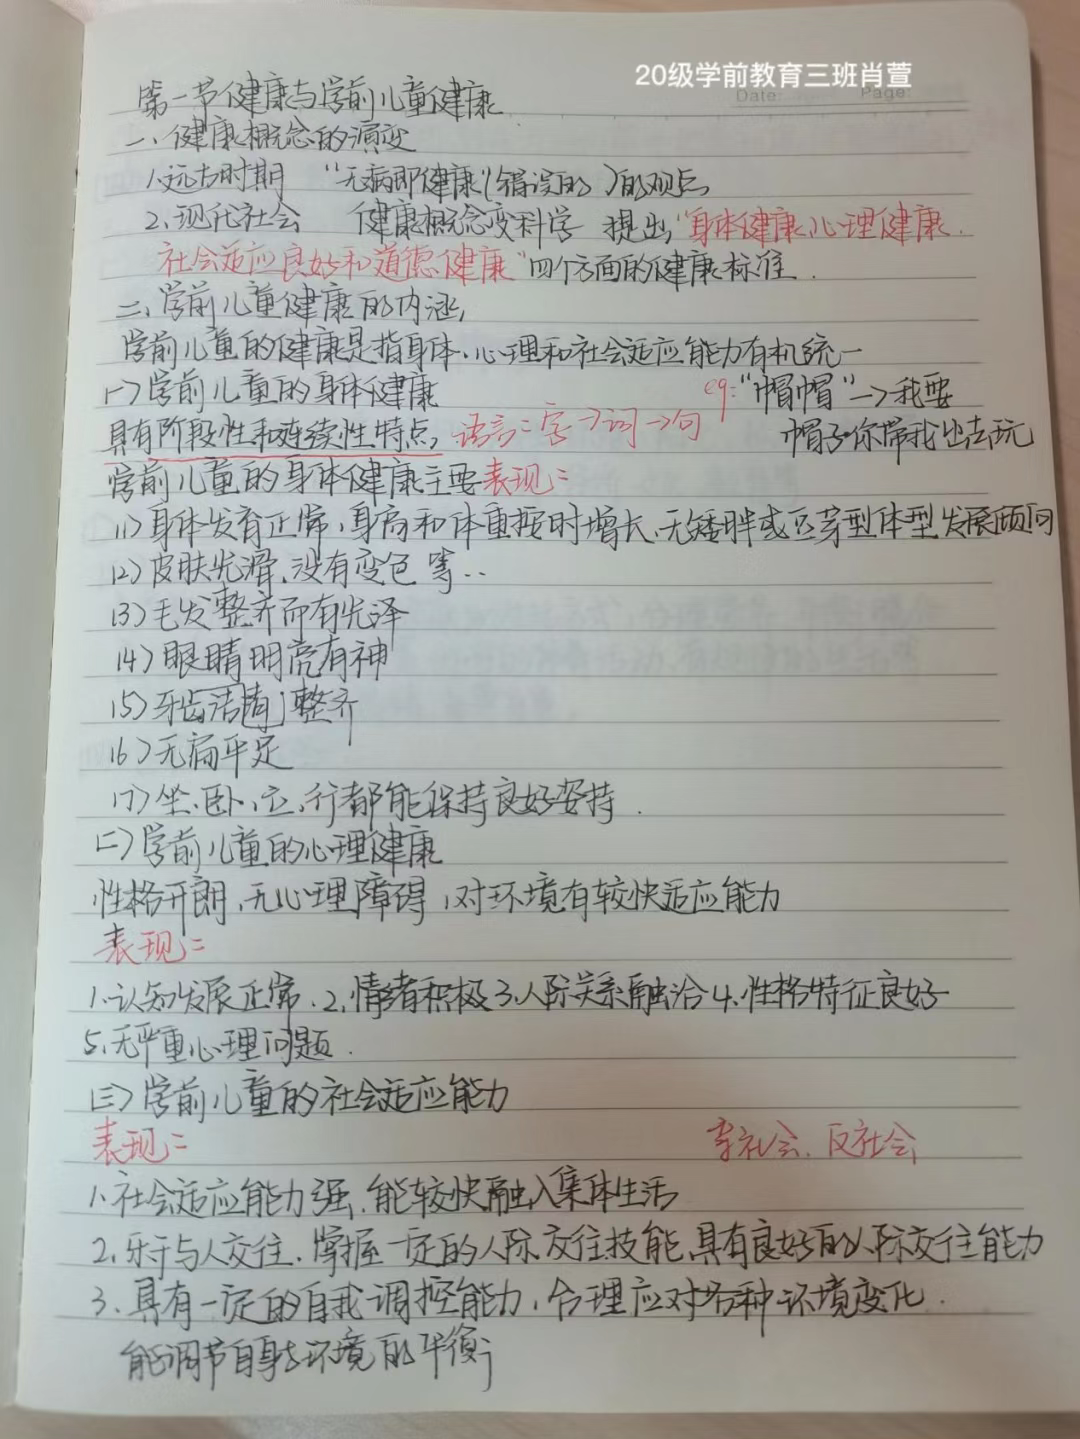 20级学前教育三班肖萱
Date: Page:
第一节健康与学前儿童健康
一、健康概念的演变
1.远古时期 "无病即健康"(错误的)的观点
2.现代社会 健康概念变科学 提出"身体健康、心理健康、
社会适应良好和道德健康"四个方面的健康标准.
二、学前儿童健康的内涵
学前儿童的健康是指身体、心理和社会适应能力有机统一
(一)学前儿童的身体健康 eg:"帽帽"—>我要
具有阶段性和连续性特点, 语言:字->词->句 帽子你带我出去玩
学前儿童的身体健康主要表现:
(1)身体发育正常,身高和体重按时增长、无矮胖或豆芽型体型发展倾向
(2)皮肤光滑、没有变色 等..
(3)毛发整齐而有光泽
(4)眼睛明亮有神
(5)牙齿洁 整齐
(6)无扁平足
(7)坐、卧、立、行都能保持良好姿持.
(二)学前儿童的心理健康
性格开朗、无心理障碍,对环境有较快适应能力
表现:
1.认知发展正常.2.情绪积极3.人际关系融洽4.性格特征良好
5.无严重心理问题.
(三)学前儿童的社会适应能力
表现: 社会、反社会
1.社会适应能力强、能较快融入集体生活
2.乐于与人交往.掌握一定的人际交往技能、具有良好的人际交往能力
3.具有一定的自我调控能力,合理应对各种环境变化.
能调节自身与环境的平衡